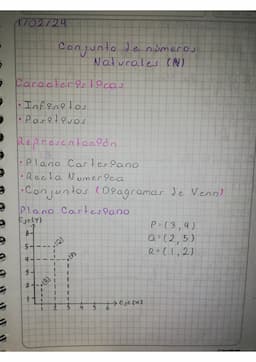 1/02/24
Conjunto de números
Naturales (N)
Características
· Infinitos
· Positivos
Representación
· Plano Cartesiano
· Recta Numerica
· Conjuntos (Diagramas de Venn)
Plano Cartesiano
Eje(Y)
P=(3,4)
Q=(2,5)
R=(1,2)
6
5
4
3
2
1
1 2 3 4 5 6 Eje(X)